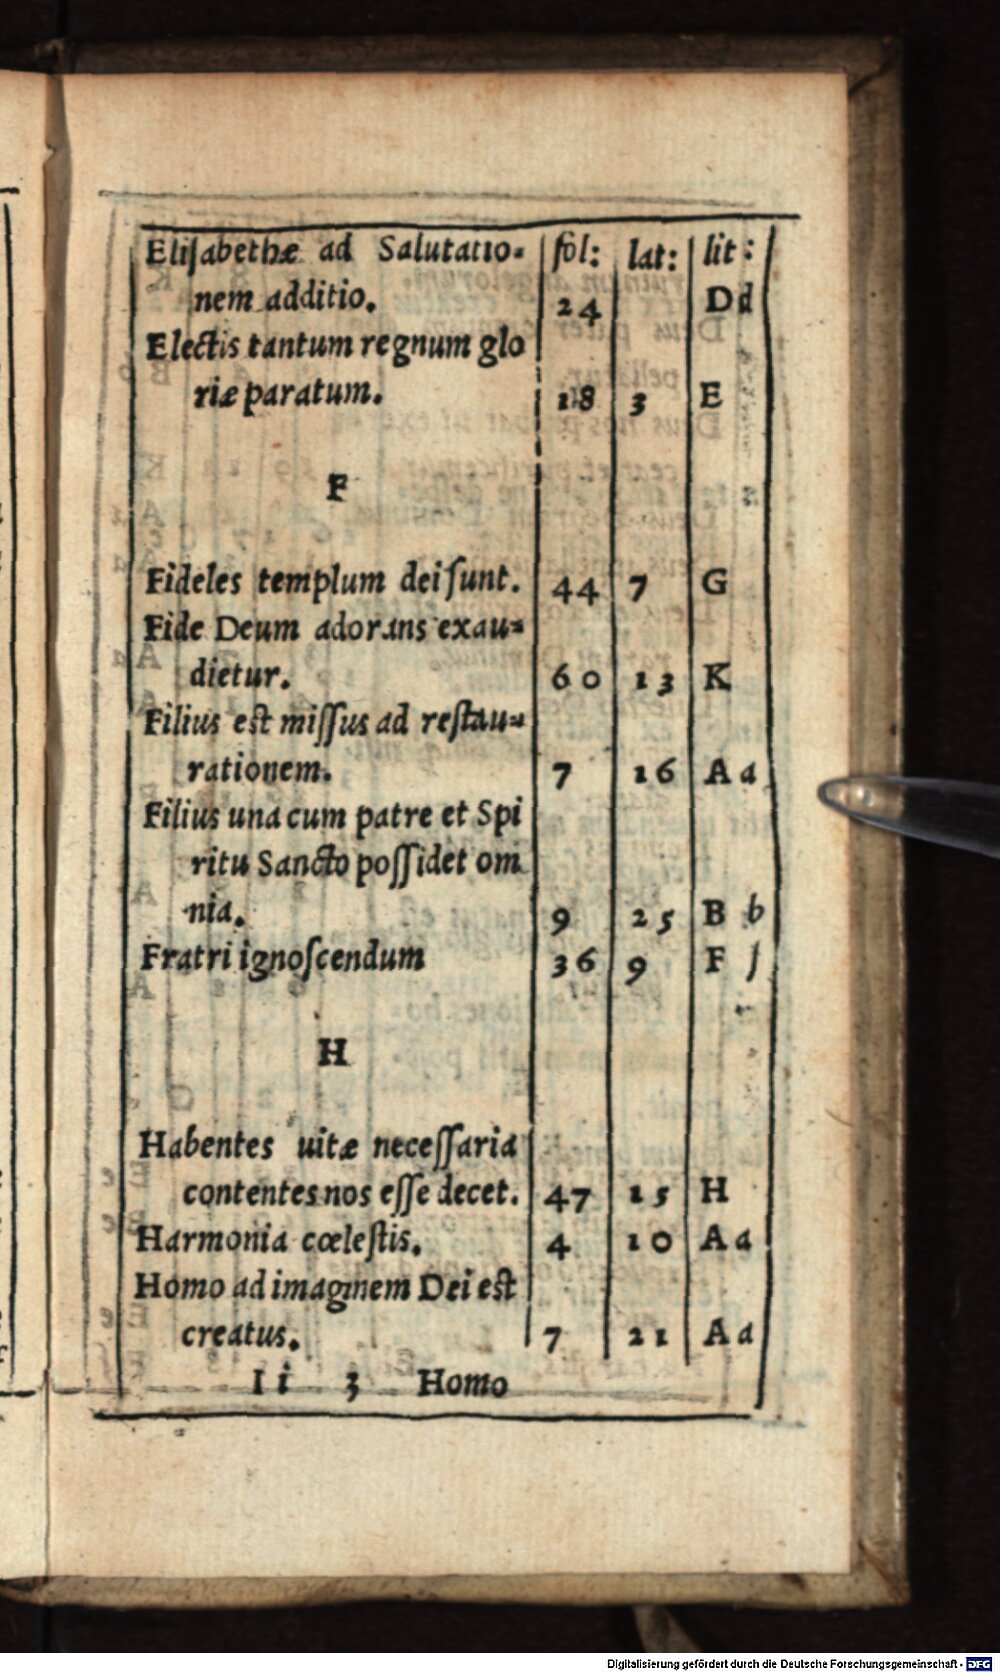 Eliſabethæ ad Salutatio- fol: lat: lit:
nem additio. 24 Dd
Electis tantum regnum glo
riæ paratum. 18 3 E
F
Fideles templum dei ſunt. 44 7 G
Fide Deum adorans exau-
dietur. 60 13 K
Filius est miſſus ad reſtau-
rationem. 7 16 Aa
Filius una cum patre et Spi
ritu Sancto poſſidet om
nia. 9 25 B b
Fratri ignoſcendum 36 9 F f
H
Habentes uitæ neceſſaria
contentes nos eſſe decet. 47 15 H
Harmonia cœleſtis. 4 10 Aa
Homo ad imaginem Dei eſt
creatus. 7 21 Aa
Ii 3 Homo
Digitalisierung gefördert durch die Deutsche Forschungsgemeinschaft - DFG